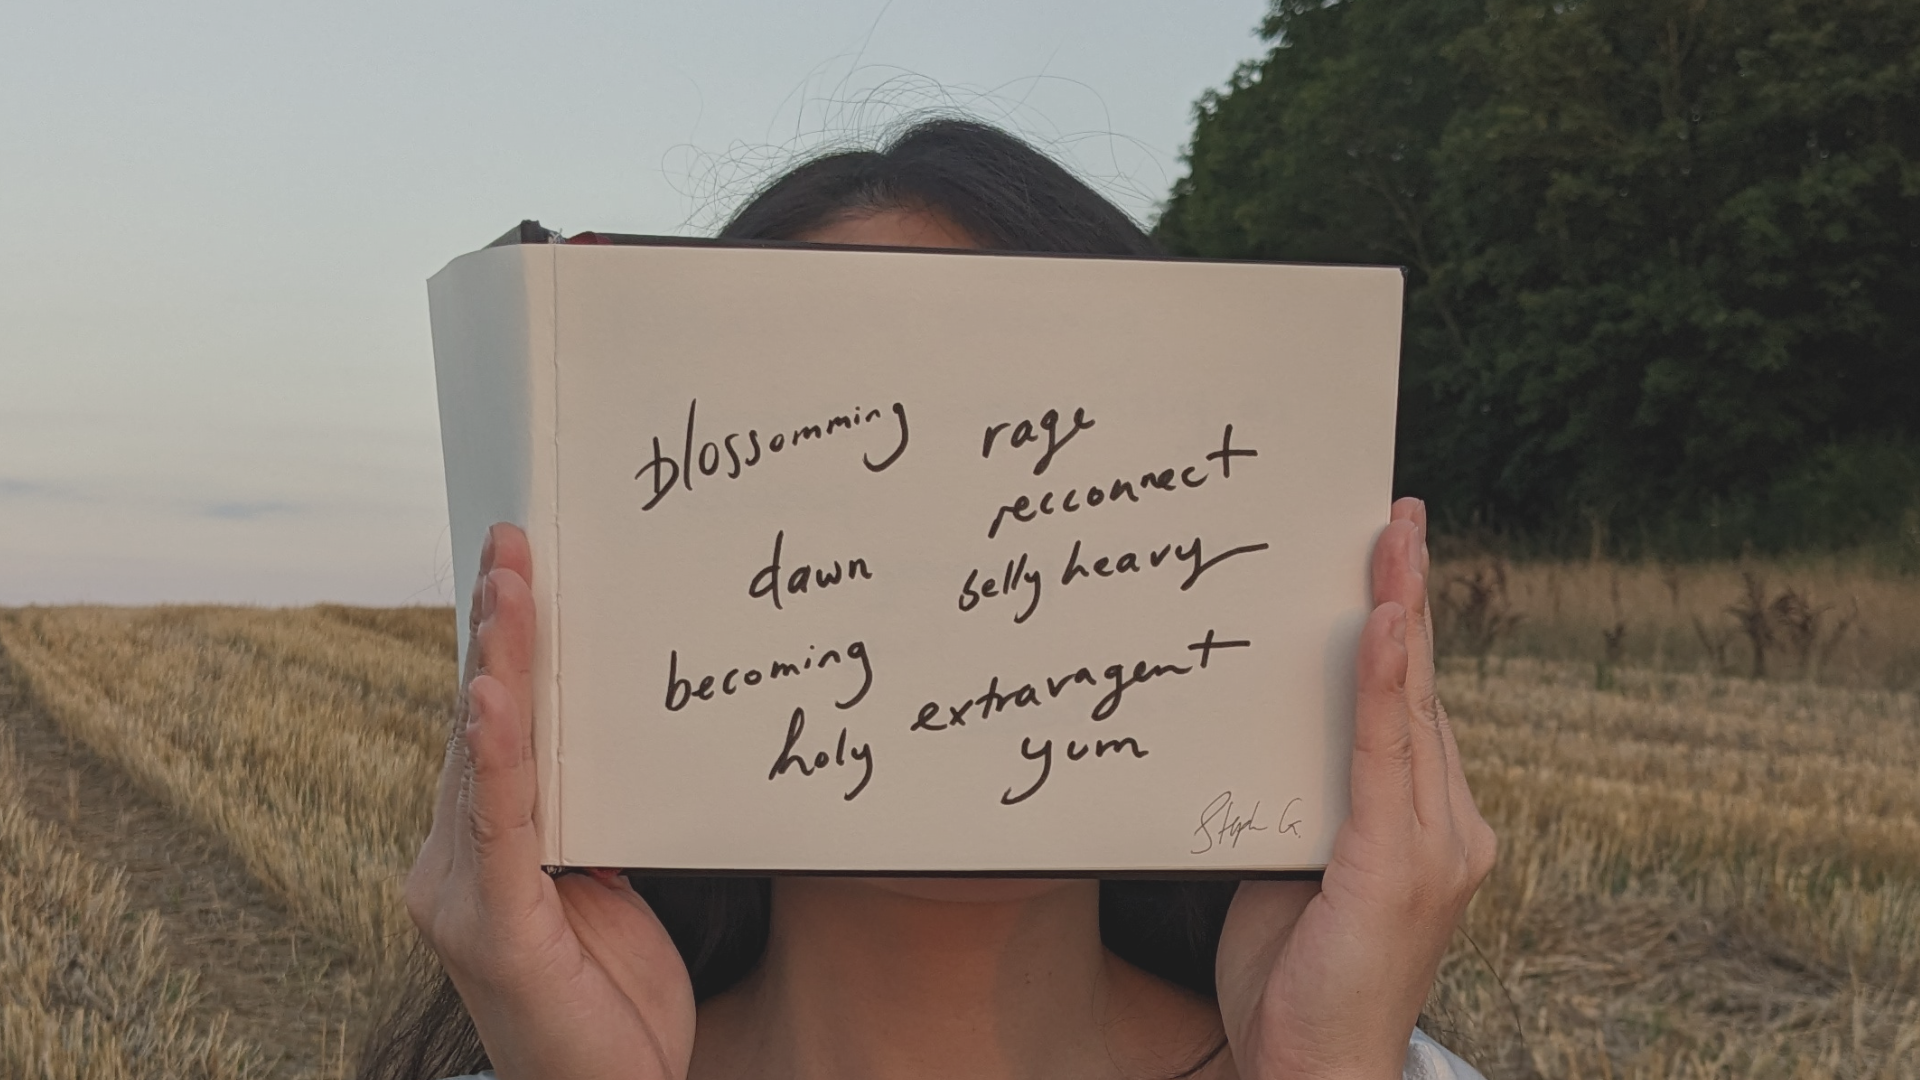 blossomming rage
recconnect
dawn belly heavy
becoming
extravagent
holy yum
Steph G.